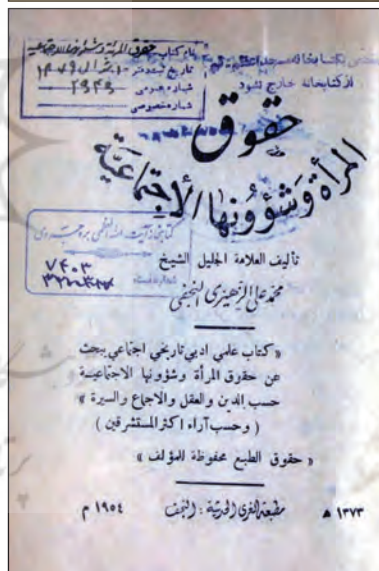 نام کتاب حقوق المرئة و شئونها الاجتماعية
تاریخ ثبت دفتر
شماره عمومی ۲۹۴۹
شماره خصوصی
از کتابخانه خارج نشود
حقوق
المرأة وَشؤونها الأجتماعيّة
كتابخانه آیت الله العظمی بروجردی
۷۴۰۳
تأليف العلامة الجليل الشيخ
محمد علي الزهيري النجفي
« كتاب علمي ادبي تاريخي اجتماعي يبحث
عن حقوق المرأة وشؤونها الاجتماعيـة
حسب الدين والعقل والاجماع والسيرة »
( وحسب آراء اكثر المستشرقين )
« حقوق الطبع محفوظة للمؤلف »
مطبعة الغري الحديثة : النجف
١٣٧٣ ه‍ ١٩٥٤ م